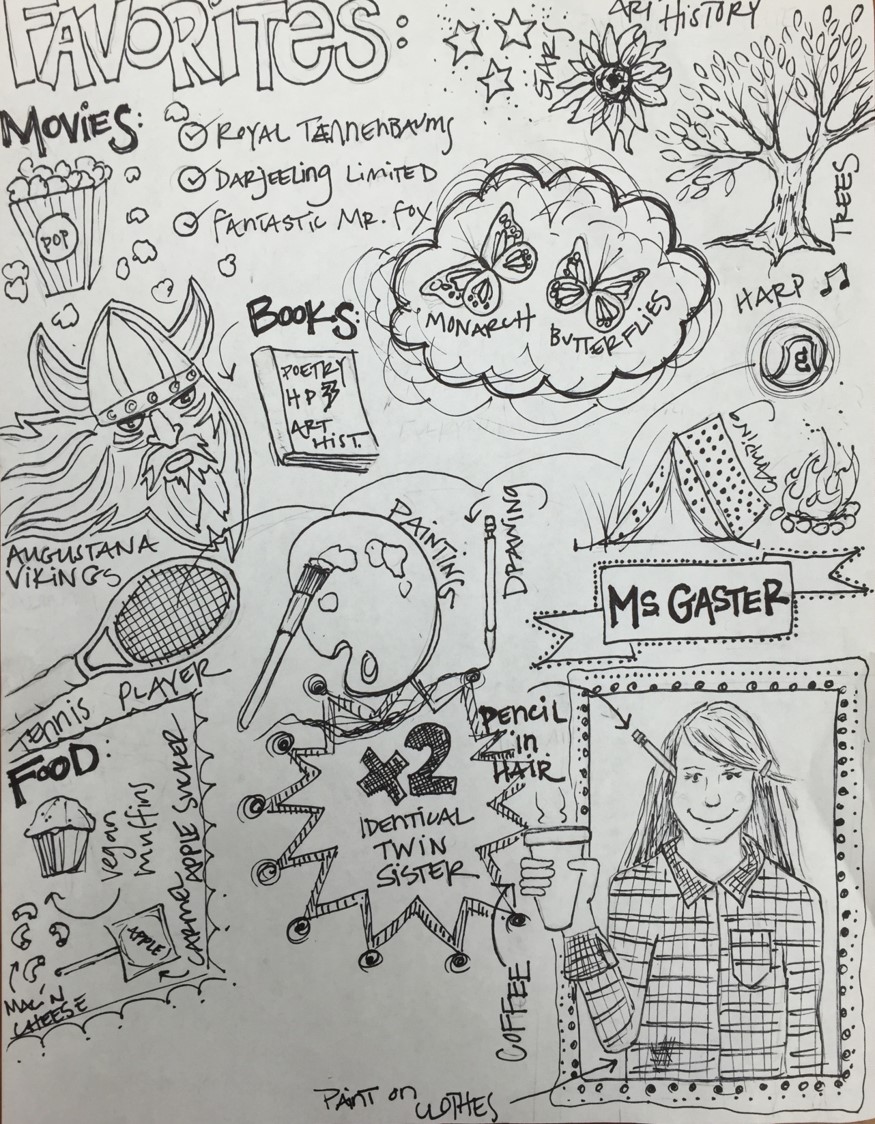 FAVORITES:
ART HISTORY
STARS
MOVIES:
ROYAL TENNENBAUMS
DARJEELING LIMITED
FANTASTIC MR. FOX
POP
TREES
MONARCH
BUTTERFLIES
HARP
BOOKS:
POETRY
HP
ART
HIST.
CAMPING
AUGUSTANA
VIKINGS
PAINTING
DRAWING
MS GASTER
TENNIS PLAYER
FOOD:
vegan
muffins
CARMEL APPLE SUCKER
APPLE!
MAC 'N
CHEESE
x2
IDENTICAL
TWIN
SISTER
PENCIL
in
HAIR
COFFEE
PAINT on
CLOTHES